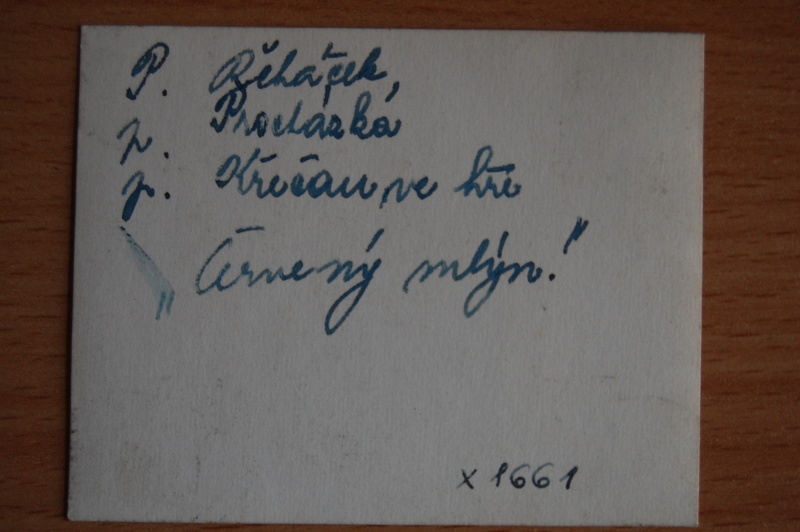 P. Běháček,
p. Procházka
p. Křečan, ve hře
„Červený mlýn."
x 1661